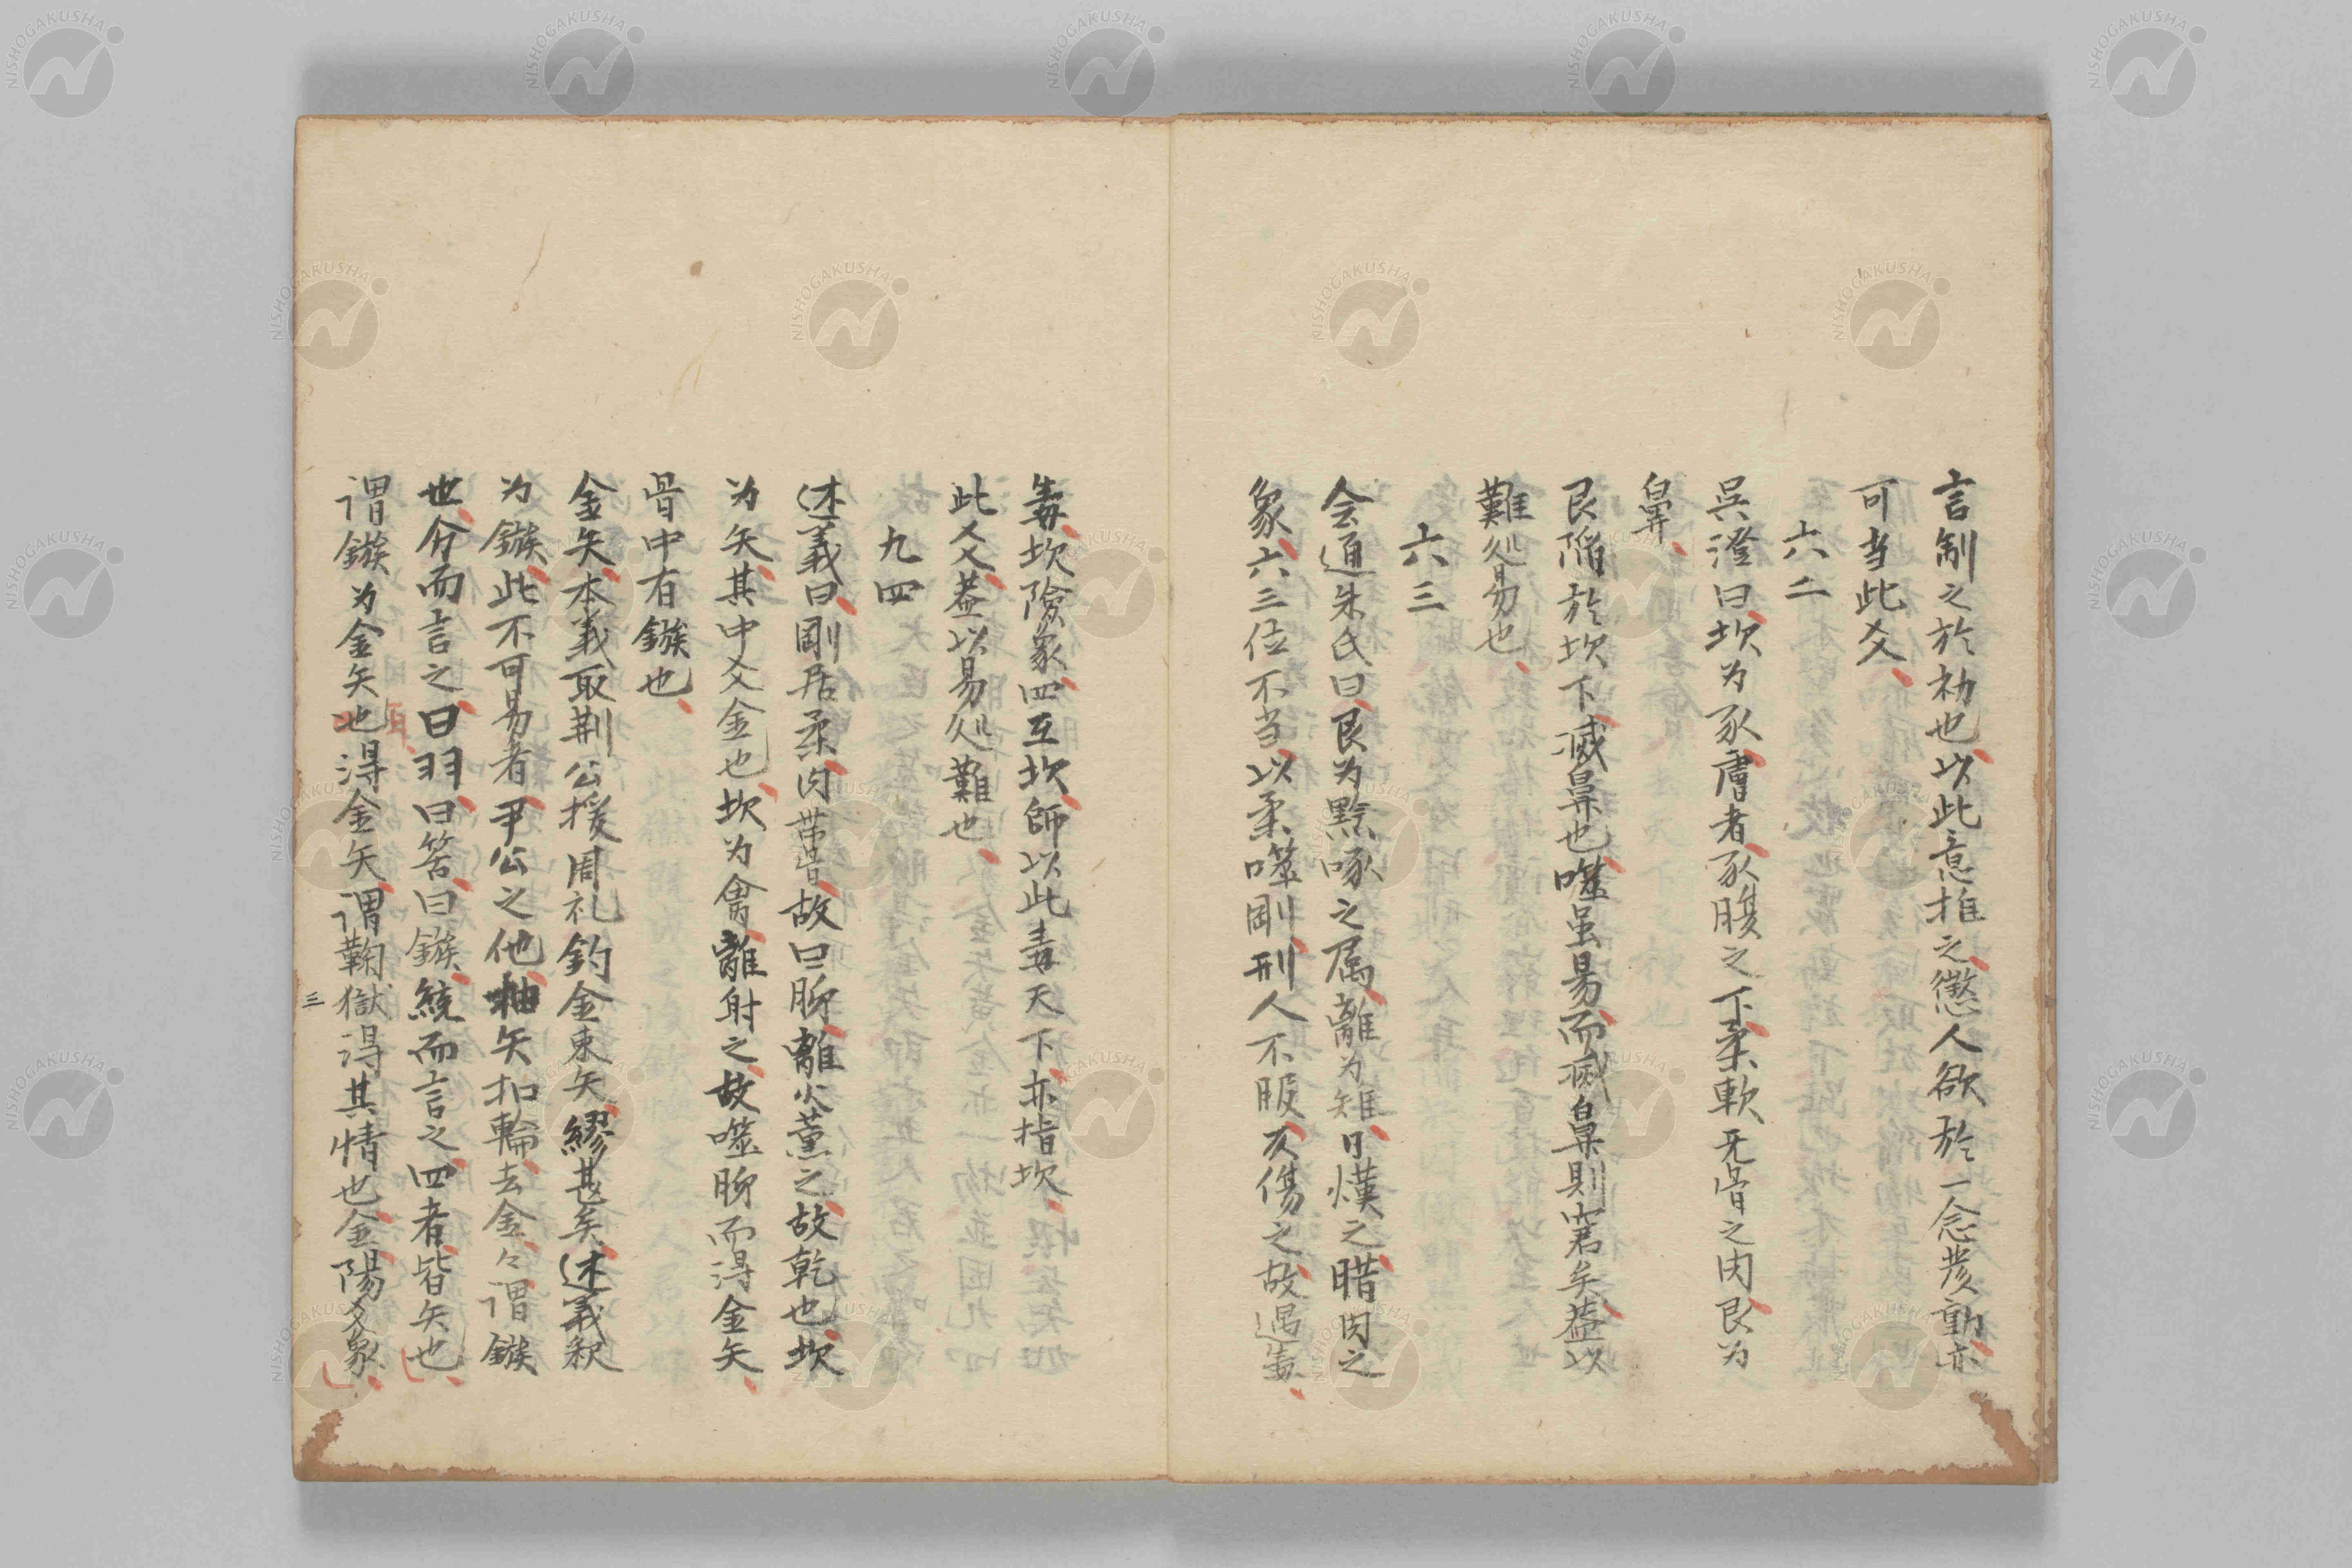 言制之於初也以此意推之懲人欲於一念發動亦
可当此爻
六二
呉澄曰坎为豕膚者豕腹之下柔軟无骨之肉艮为
鼻
艮陷於坎下滅鼻也噬虽易而滅鼻則窘矣蓋以
難処易也
六三
会通朱氏曰艮为黔喙之属離为雉日熯之腊肉之
象六三位不当以柔噬剛刑人不服反傷之故遇毒
毒坎險象四互坎師以此毒天下亦指坎
此爻蓋以易処難也
九四
述義曰剛居柔肉帯骨故曰胏離火薫之故乾也坎
为矢其中爻金也坎为禽離射之故噬胏而得金矢
骨中有鏃也
金矢本義取荆公援周礼釣金束矢繆甚矣述義釈
为鏃此不可易者尹公之他抽矢扣輪去金々謂鏃
也分而言之曰羽曰筈曰鏃統而言之四者皆矢也
謂鏃为金矢也得金矢謂鞠獄得其情也金陽爻象
三
NISHOGAKUSHA